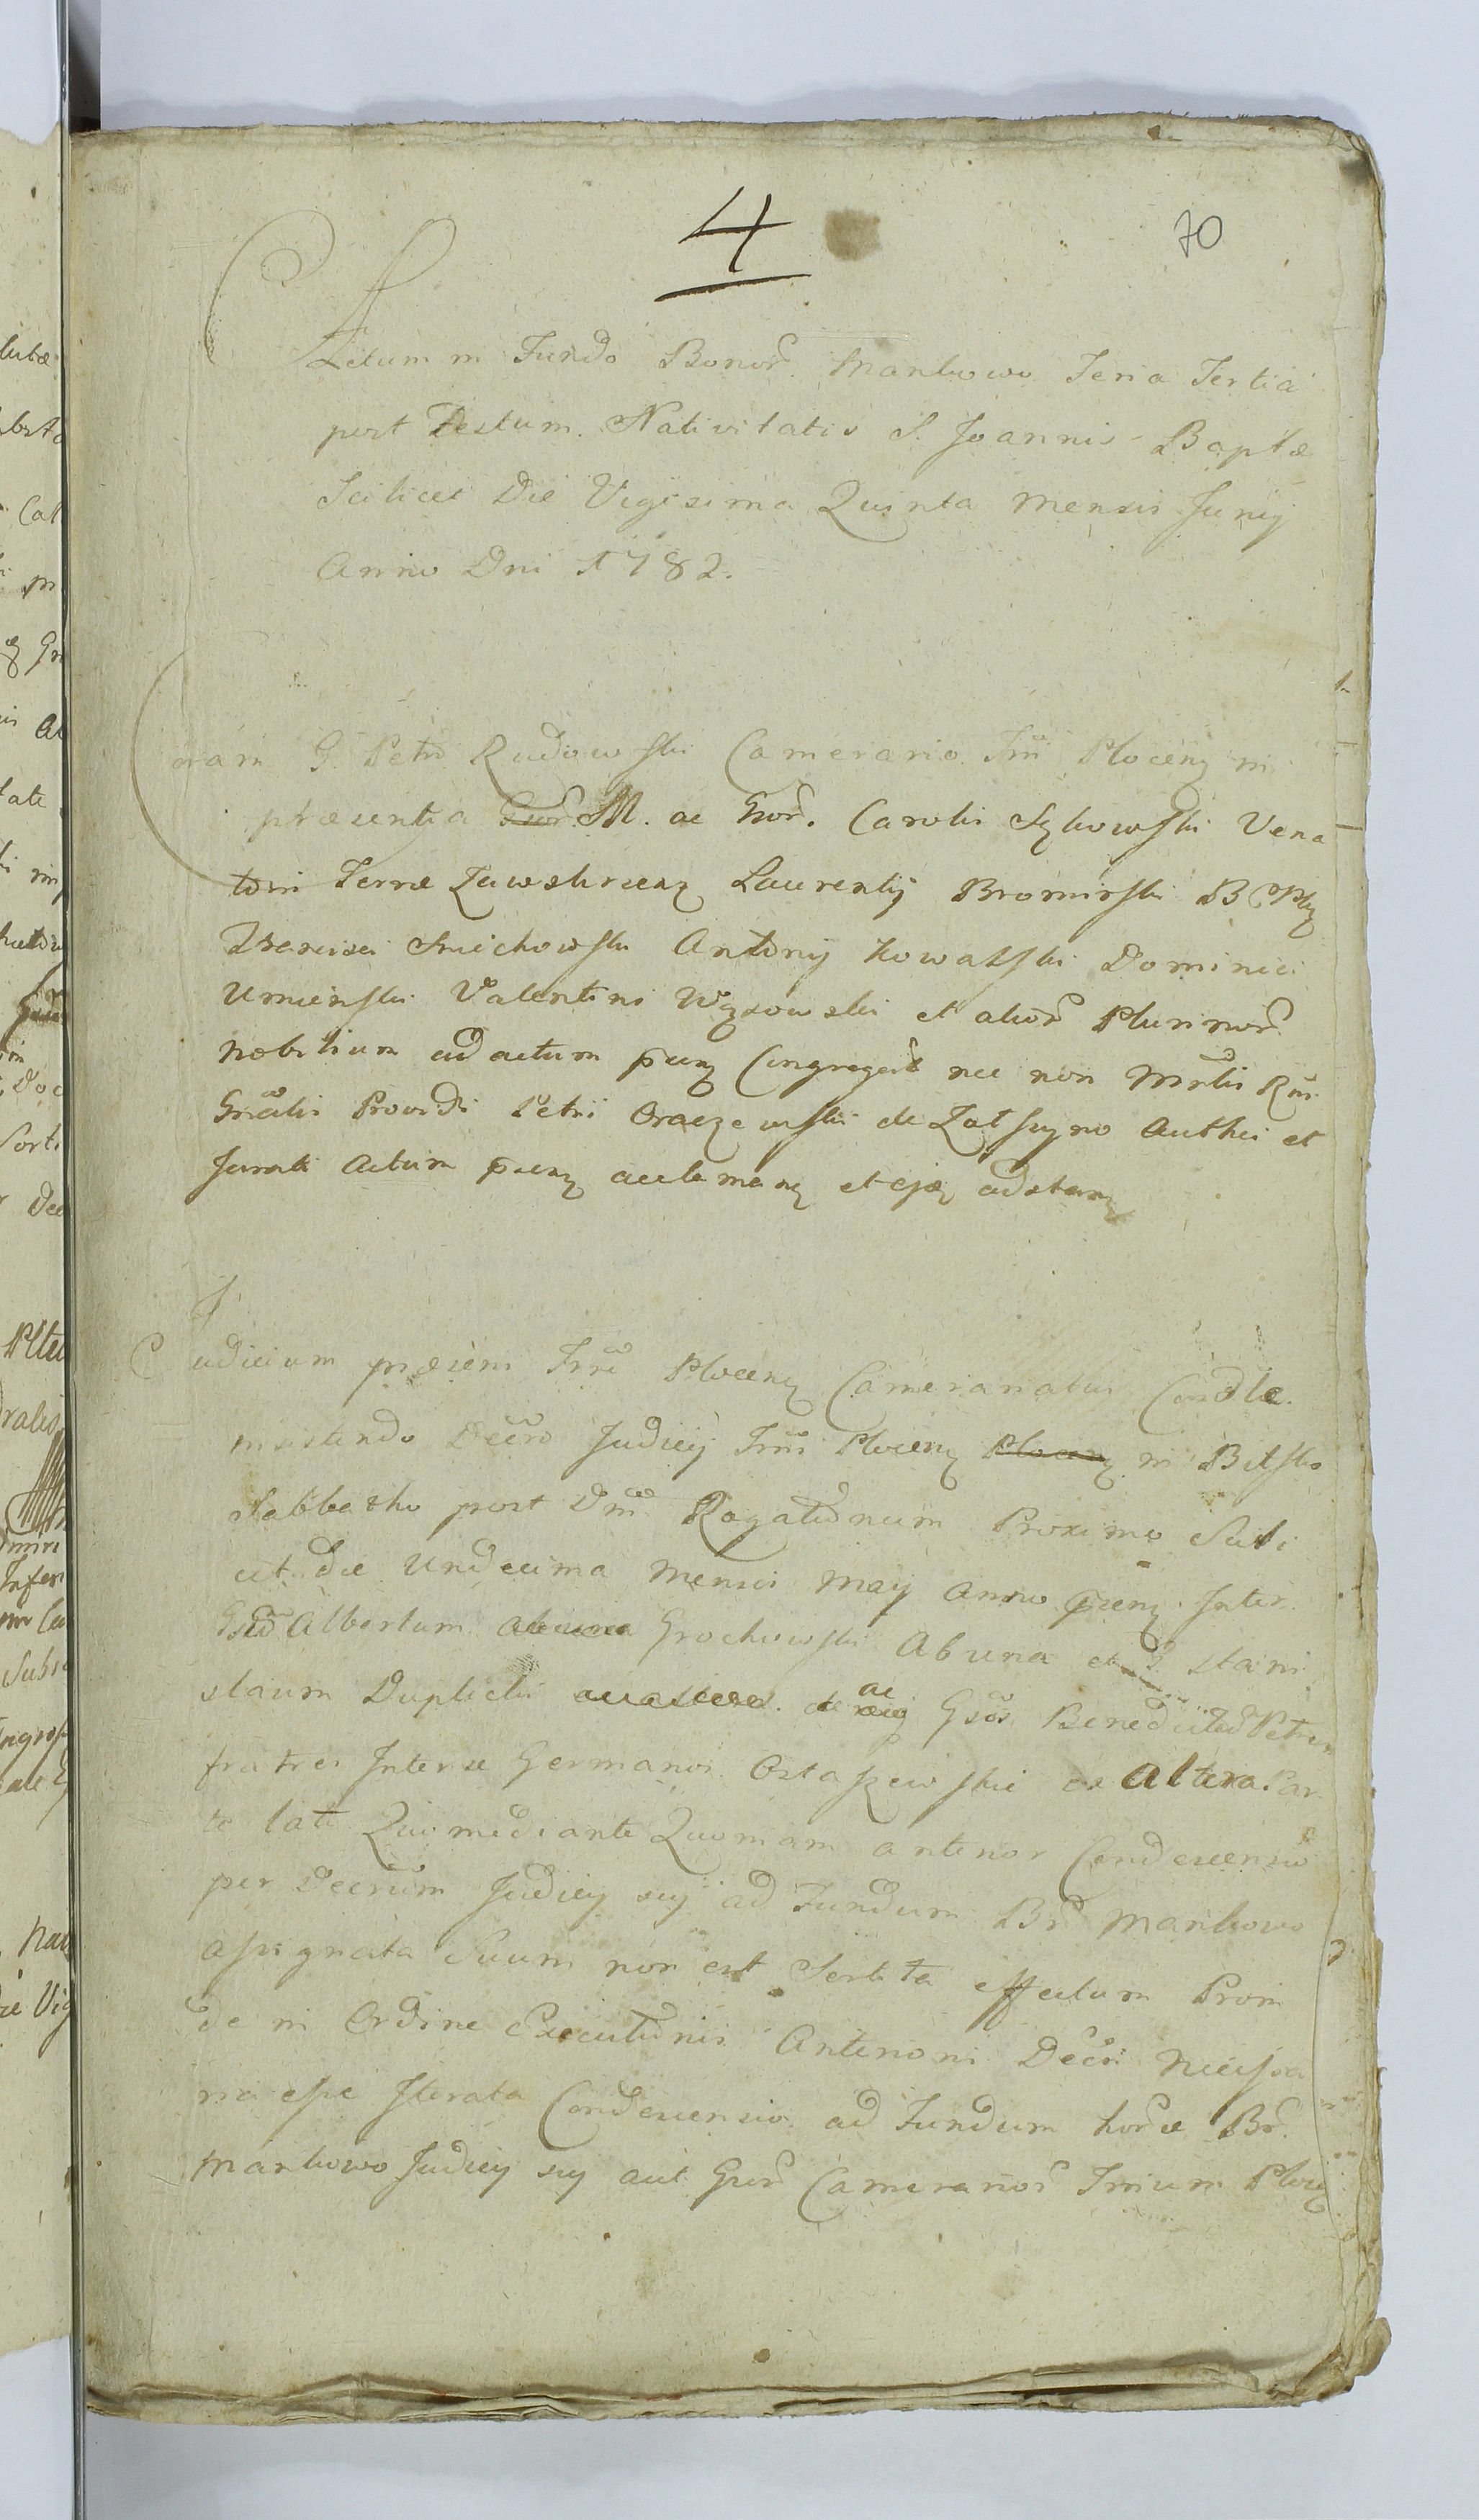 4
70
Actum in Fundo Bonor. Mankowo Feria Tertia
post Festum Nativitatis S. Joannis Baptae
Scilicet Die Vigesima Quinta Mensis Junij
Anno Dni 1782.
Coram G. Petro Rudowski Camerario Trrae Plocenz in
praesentia M. ac Gnor. Carolis Sykowski Vena
toris Terrae Zawskrzenz Laurentij Bromirski B
Antonij Kowalski Dominici
Umienski Valentini Wązowski et alior Plurimor
Nobilium ad actum prnz Congregat nec non Mrlis Rni
Gnalis Providi Petri Oraczewski de Authci et
Jurati Actum prnz acclamanz et adstanz
Judicium praesens Trrae Plocenz Camerariatus Condle
insistendo Decro Judicij Trris Plocenz Plocenz in Bielsko
Sabbatho post Dni Rogationum Proximo Sali
cet die Undecima Mensis May Anno prnz Inter
Gsd Albertum Grochowski Ab una et G Stani
slaum Duplicis ac Gsos Benedictum Petrum
fratres Inter se Germanos Ostaszewskie ex Altera Par
te lato Quo mediante Quoniam anterior Condescensio
per Decrum Judicij suj ad Fundum Br Mankowo
assignata Suum non est Sortita effectum Proin
de in Ordine Executionis Anterioris Decri Necessa
ria esse Iterata Condescensio ad Fundum horce Br.
Mankowo Judicij suj aut Gnor Camerarior Trrium Plocenz